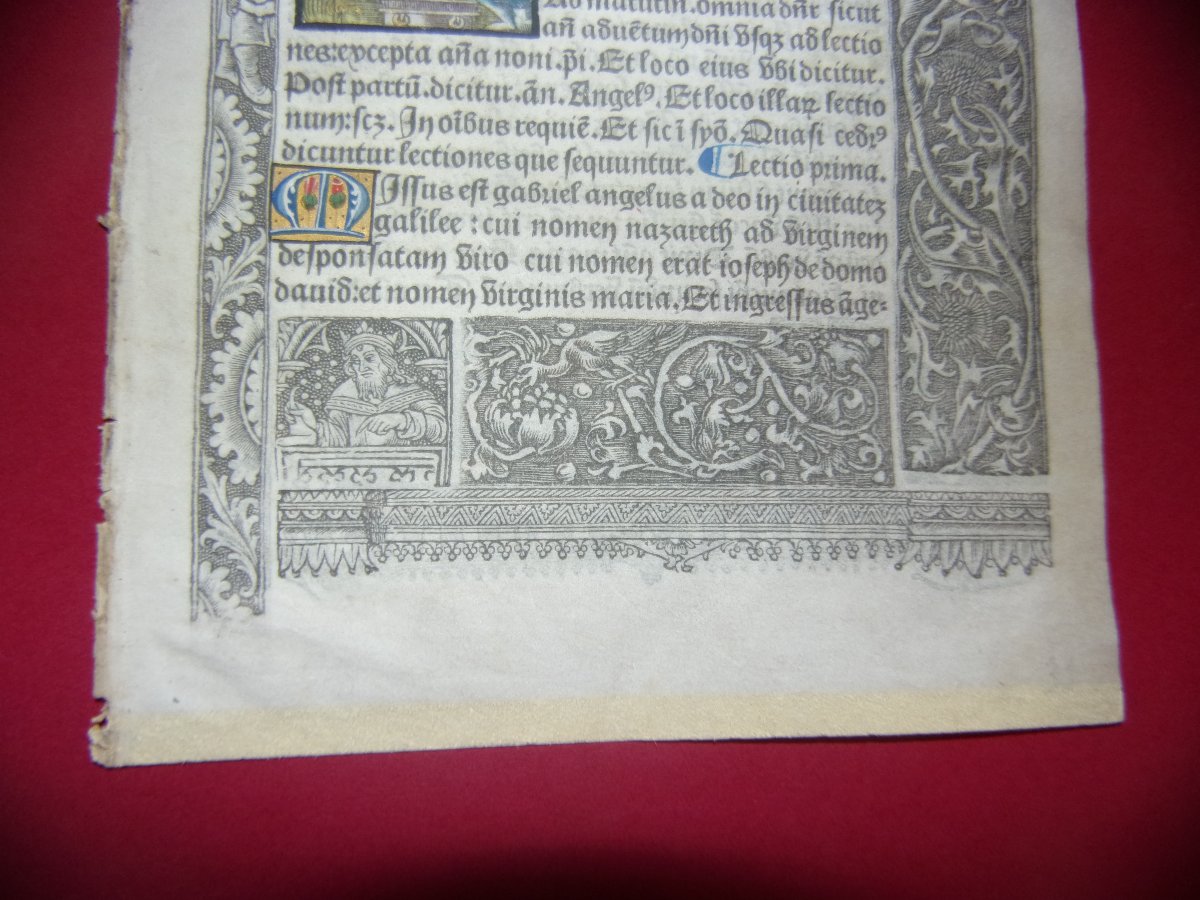 Ad matutin̄. omnia dn̄r sicut
an̄ aduētum dn̄i vsqꝫ ad lectio
nes: excepta an̄a noni. p̄i. Et loco eius vbi dicitur.
Post partū. dicitur. ān. Angelꝰ. Et loco illaꝝ lectio
num: scꝫ. In oībus requiē. Et sic ī syō. Quasi cedrꝰ
dicuntur lectiones que sequuntur. ¶ Lectio prima.
MIssus est gabriel angelus a deo in ciuitateꝫ
galilee: cui nomen nazareth ad virginem
desponsatam viro cui nomen erat ioseph de domo
dauid: et nomen virginis maria. Et ingressus āge-